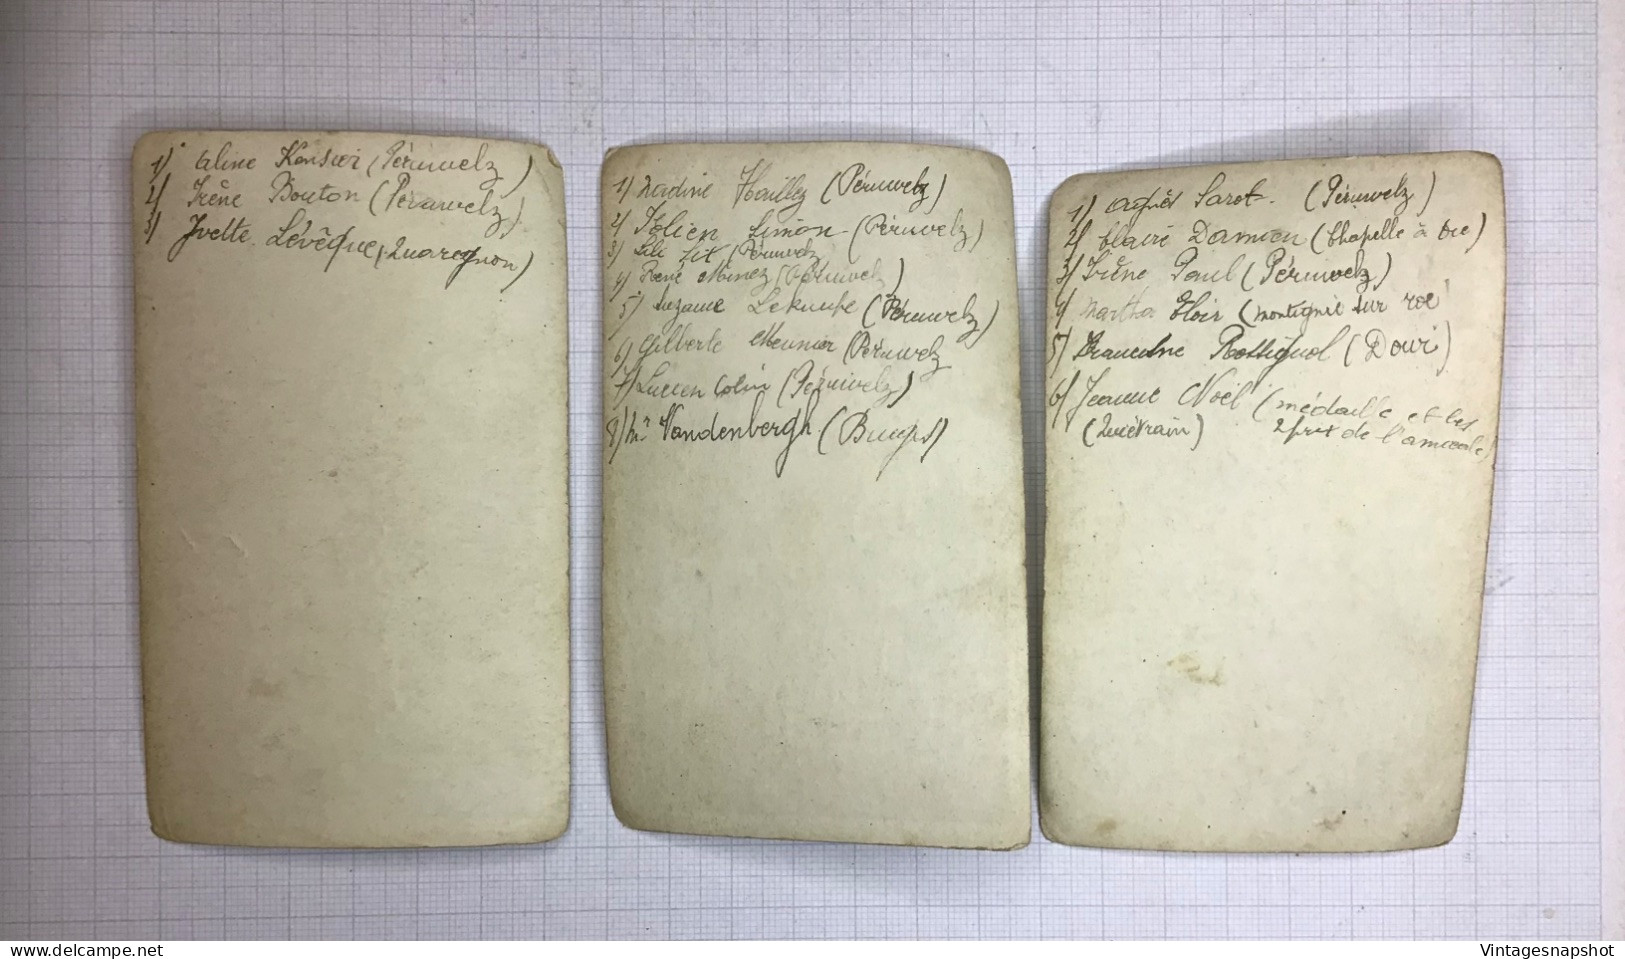 1) Aline (Péruwelz)
2) Irène Bouton (Péruwelz)
3) Yvette Lévêque (Quaregnon)
1) Nadine Hailley (Péruwelz)
2) Simon (Péruwelz)
3) Lili (Péruwelz
4) René (Péruwelz)
5) Suzanne (Péruwelz)
6) Gilberte Meunier (Péruwelz
7) Lucien Colin (Péruwelz)
8) Mr Vandenbergh. (
1) Agnès Sarot. (Péruwelz)
2) Claire Damien (Chapelle à Oie)
3) Irène Paul (Péruwelz)
4) Martha Eloir (montignie sur roc
5) Francine Rossignol (Dour)
6) Jeanne Noël (médaille et les
(Quiévrain) 2 prix de l'amicale)
delcampe.net
Vintagesnapshot